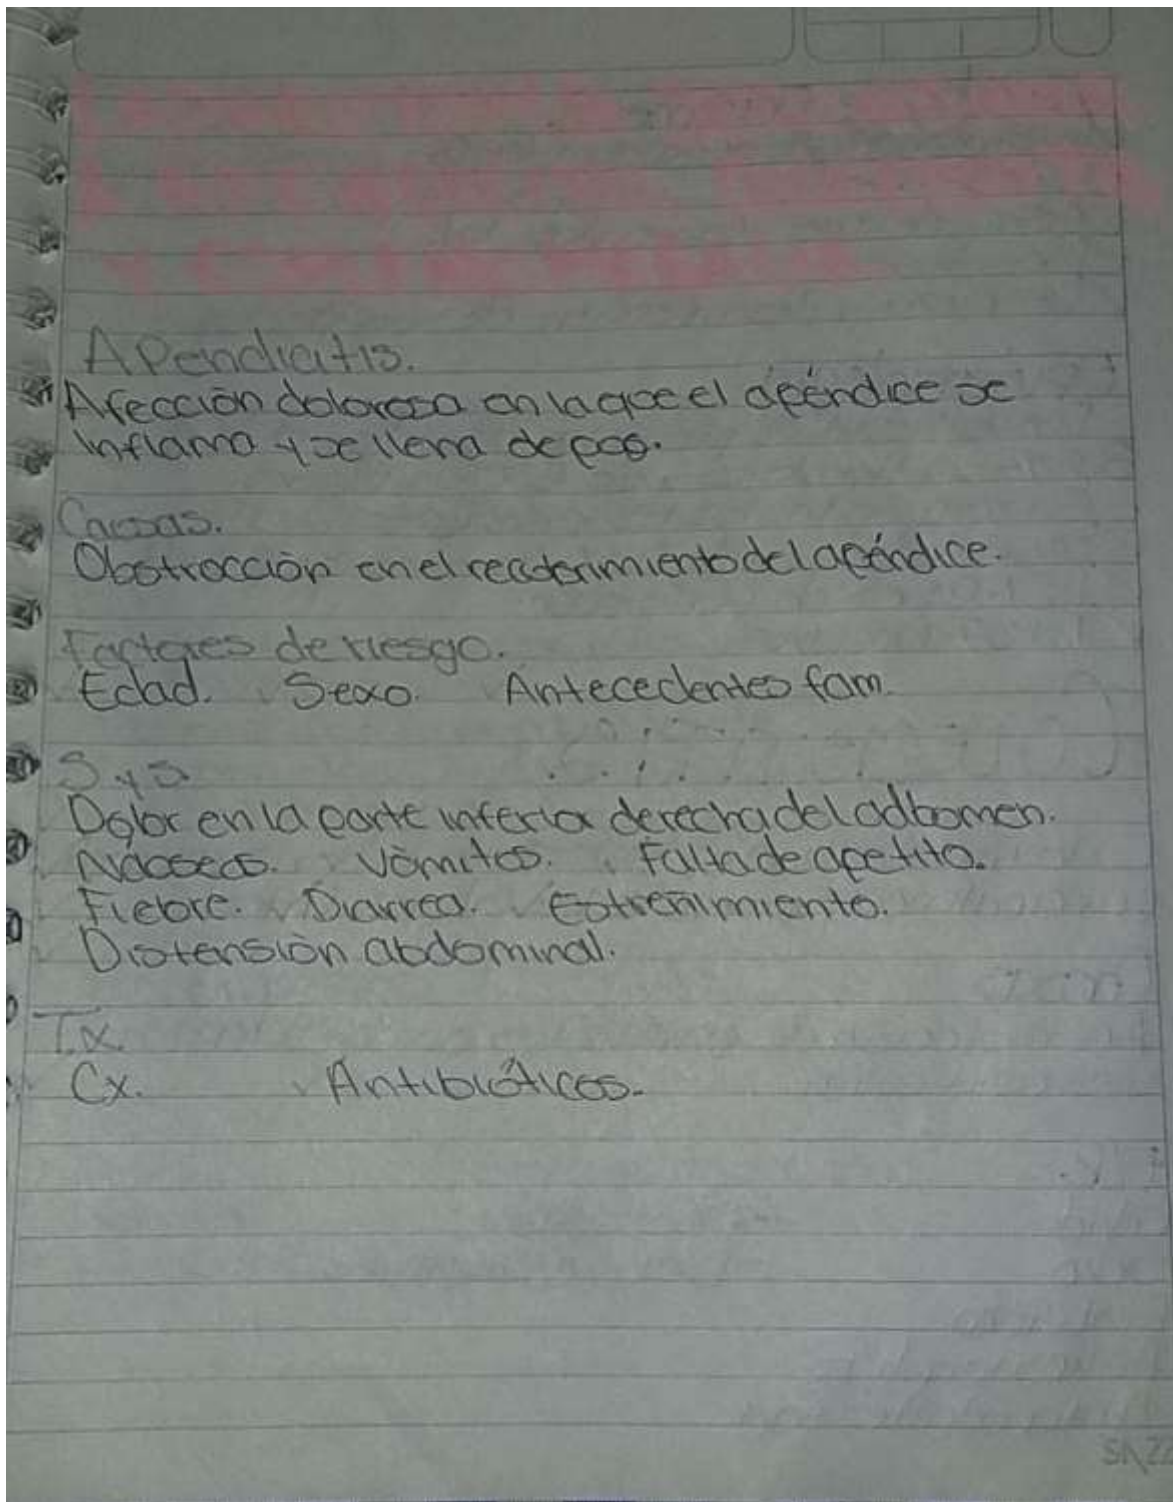 Apendicitis.
Afección dolorosa en la que el apéndice se
inflama y se llena de pus.
Causas.
Obstrucción en el recubrimiento del apéndice.
Factores de riesgo.
Edad. Sexo. Antecedentes fam.
S y S
Dolor en la parte inferior derecha del adbomen.
Náuseas. Vómitos. Falta de apetito.
Fiebre. Diarrea. Estreñimiento.
Distensión abdominal.
T.x.
Cx. Antibióticos.